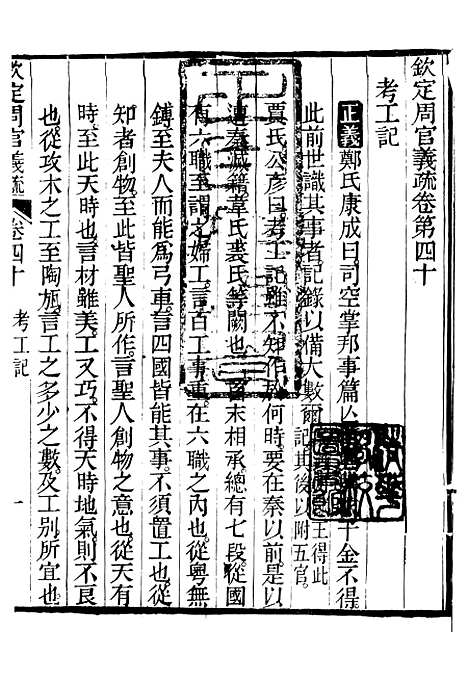 欽定周官義疏卷第四十
考工記
正義鄭氏康成曰司空掌邦事篇亡 千金不得
此前世識其事者記錄以備大數爾 王得此
記其後以附五官
賈氏公彥曰考工記雖不知作於何時要在秦以前是以
遭秦滅籍韋氏裘氏等闕也 首末相承總有七段從國
有六職至謂之婦工言百工事重在六職之內也從粵無
鎛至夫人而能為弓車言四國皆能其事不須置工也從
知者創物至此皆聖人所作言聖人創物之意也從天有
時至此天時也言材雖美工又巧不得天時地氣則不良
也從攻木之工至陶瓬言工之多少之數及工別所宜也
欽定周官義疏
卷四十 考工記
一